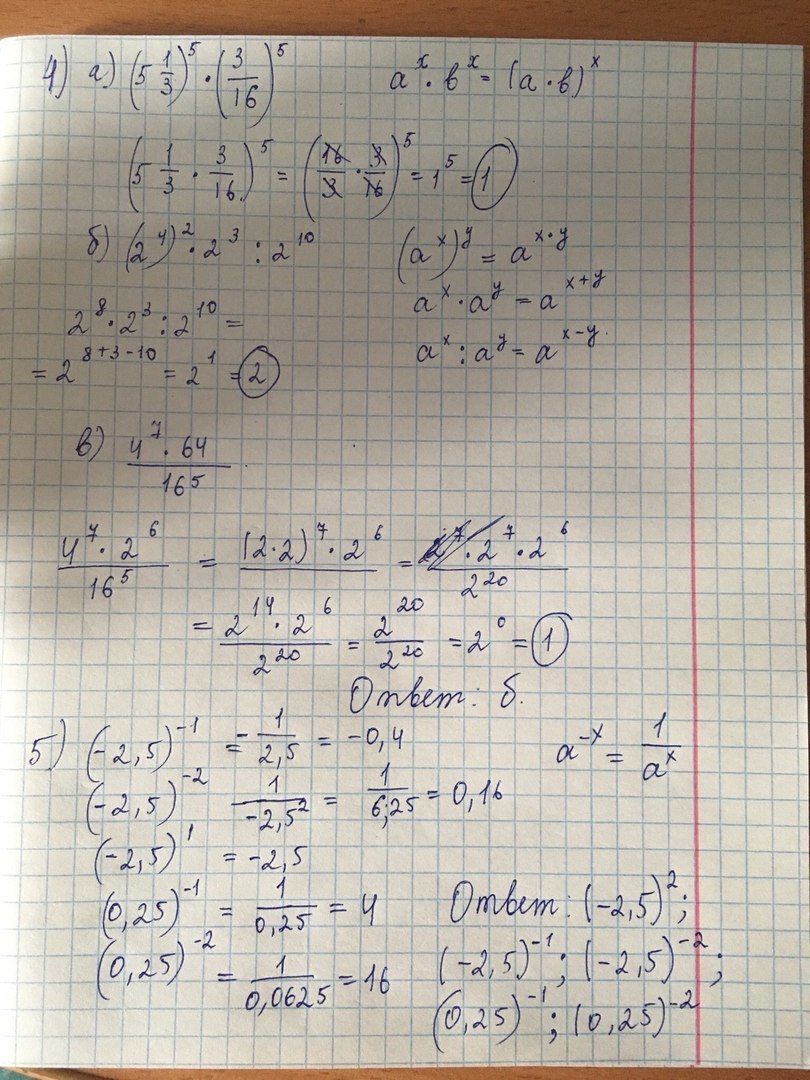 4) а) (5 1/3)^5 · (3/16)^5    a^x · b^x = (a · b)^x
(5 1/3 · 3/16)^5 = (16/3 · 3/16)^5 = 1^5 = 1
б) (2^4)^2 · 2^3 : 2^10    (a^x)^y = a^(x·y)
2^8 · 2^3 : 2^10 =    a^x · a^y = a^(x+y)
= 2^(8+3-10) = 2^1 = 2    a^x : a^y = a^(x-y)
в) (4^7 · 64)/16^5
(4^7 · 2^6)/16^5 = (2·2)^7 · 2^6 = (2^7 · 2^7 · 2^6)/2^20
= (2^14 · 2^6)/2^20 = 2^20/2^20 = 2^0 = 1
Ответ: б.
5) (-2,5)^-1 = -1/2,5 = -0,4    a^-x = 1/a^x
(-2,5)^-2    1/-2,5^2 = 1/6,25 = 0,16
(-2,5)^1 = -2,5
(0,25)^-1 = 1/0,25 = 4    Ответ: (-2,5)^2;
(0,25)^-2 = 1/0,0625 = 16    (-2,5)^-1; (-2,5)^-2;
(0,25)^-1; (0,25)^-2